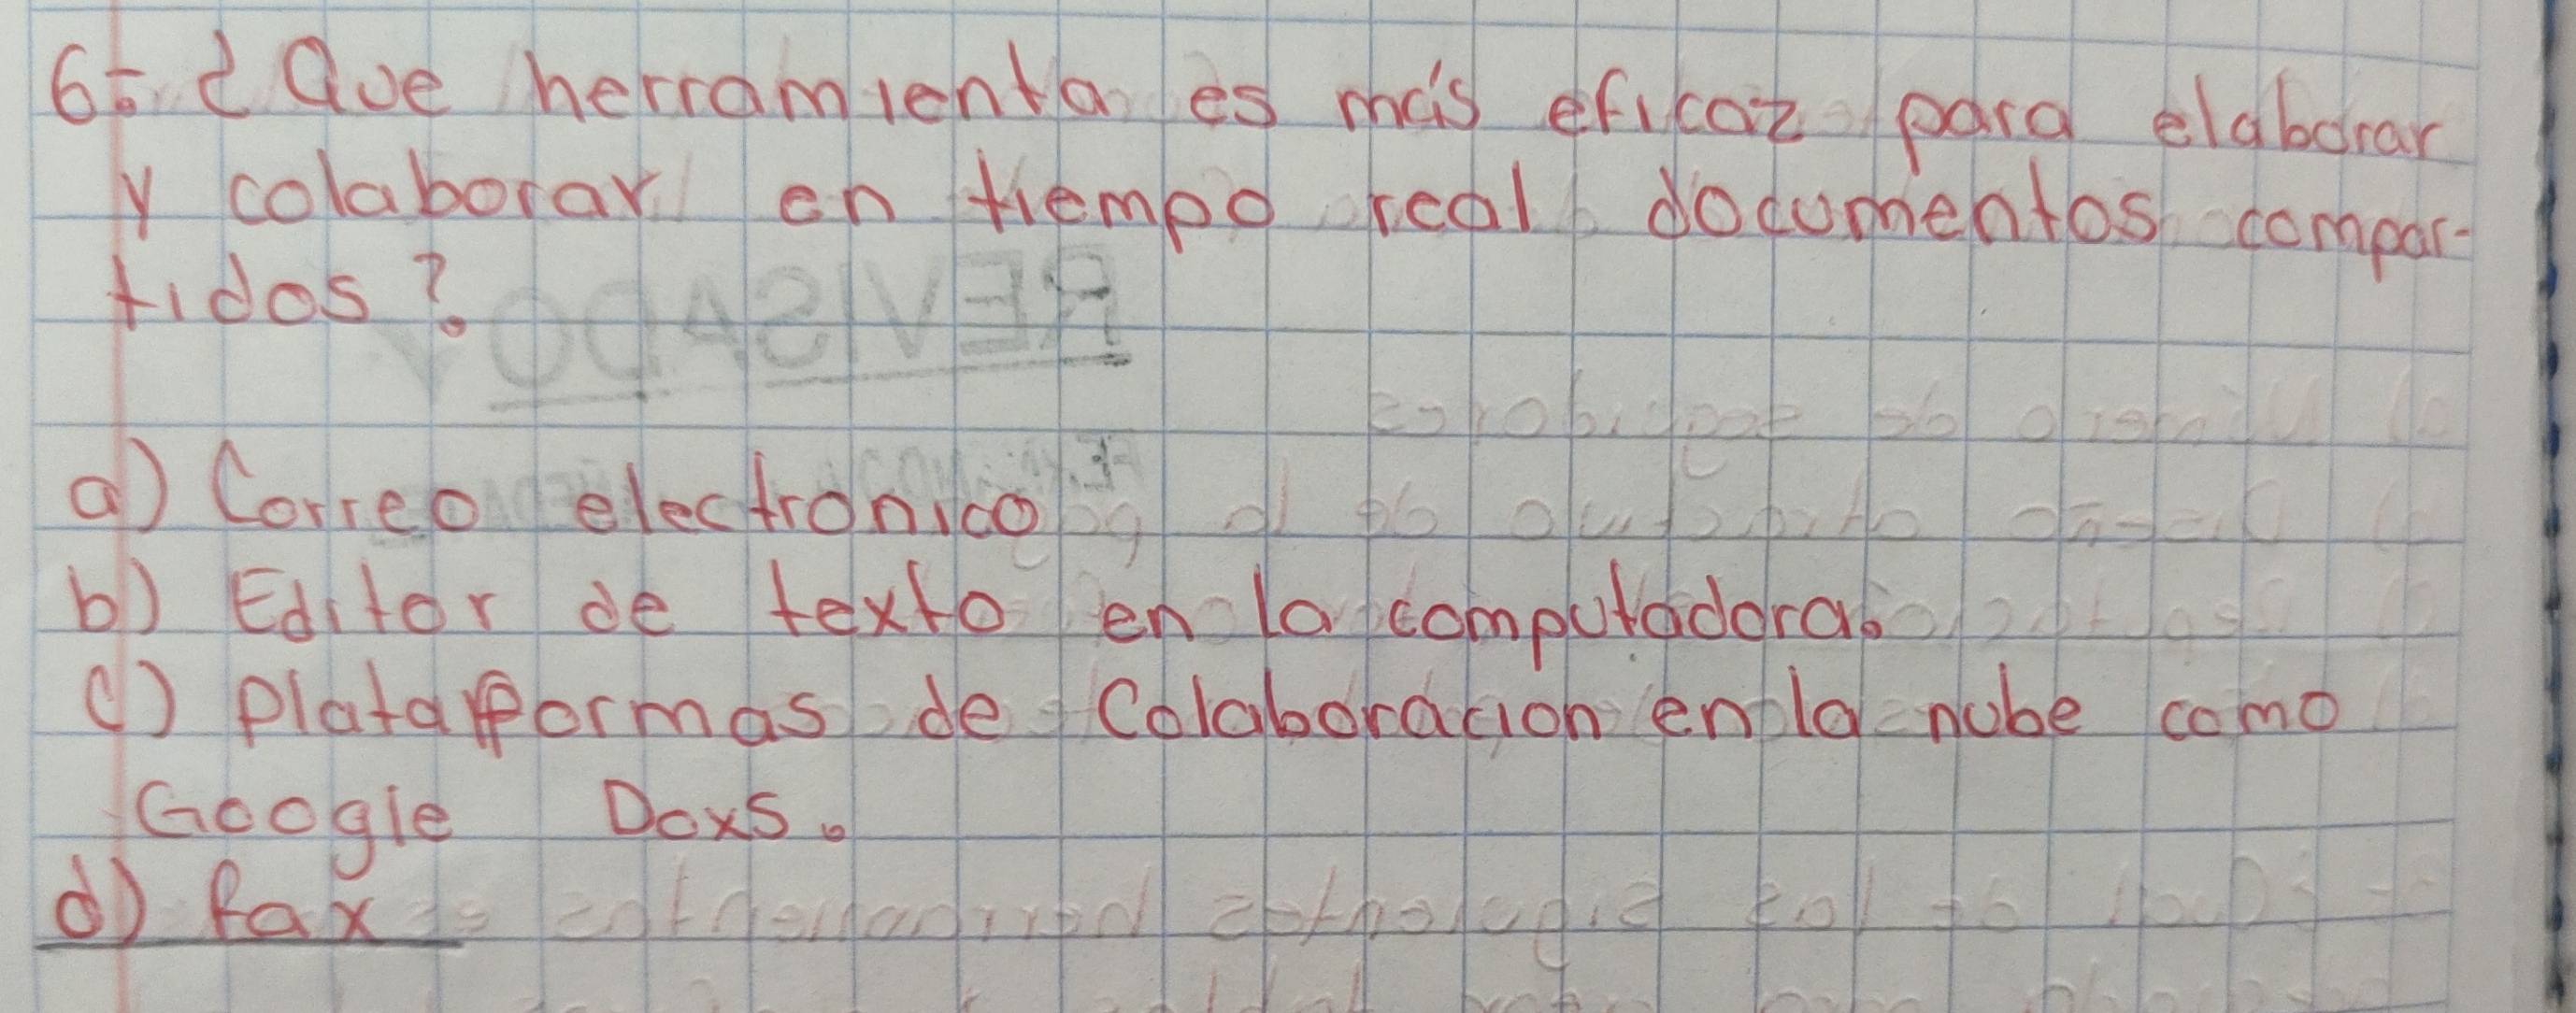 6.- ¿Que herramienta es más eficaz para elaborar
y colaborar en tiempo real documentos compar-
tidos?
a) Correo electronico
b) Editor de texto en la computadora.
c) plataformas de Colaboracion en la nube como
Google Doxs.
d) fax